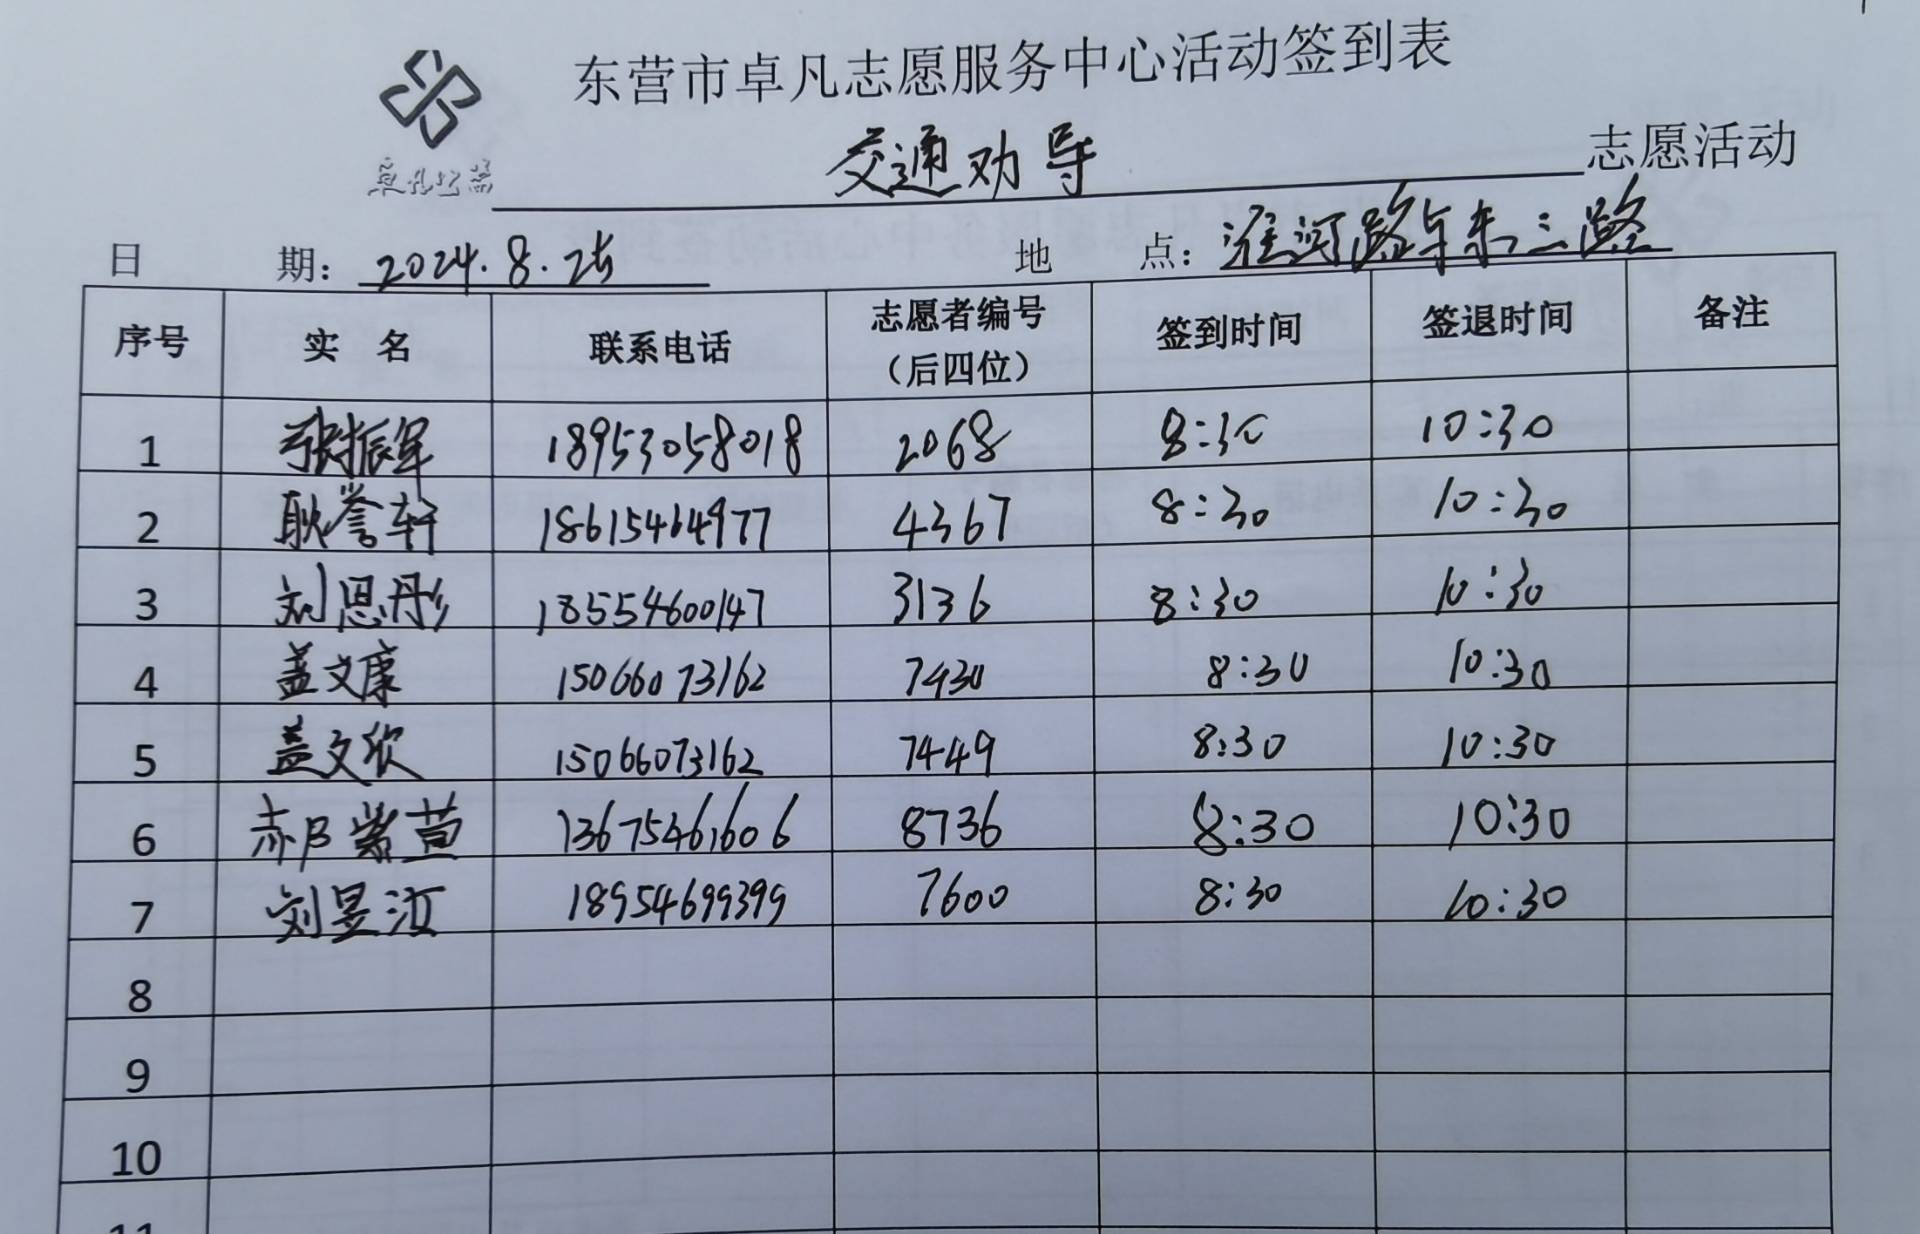 东营市卓凡志愿服务中心活动签到表
卓凡公益
交通劝导 志愿活动
日 期：2024.8.25 地 点：淮河路与东三路
序号 实 名 联系电话 志愿者编号（后四位） 签到时间 签退时间 备注
1 张振军 18953058018 2068 8:30 10:30
2 耿誉轩 18615464977 4367 8:30 10:30
3 刘恩彤 18554600147 3136 8:30 10:30
4 盖文康 15066073162 7430 8:30 10:30
5 盖文欣 15066073162 7449 8:30 10:30
6 郝紫萱 13675461606 8736 8:30 10:30
7 刘昱汝 18954699399 7600 8:30 10:30
8
9
10
11